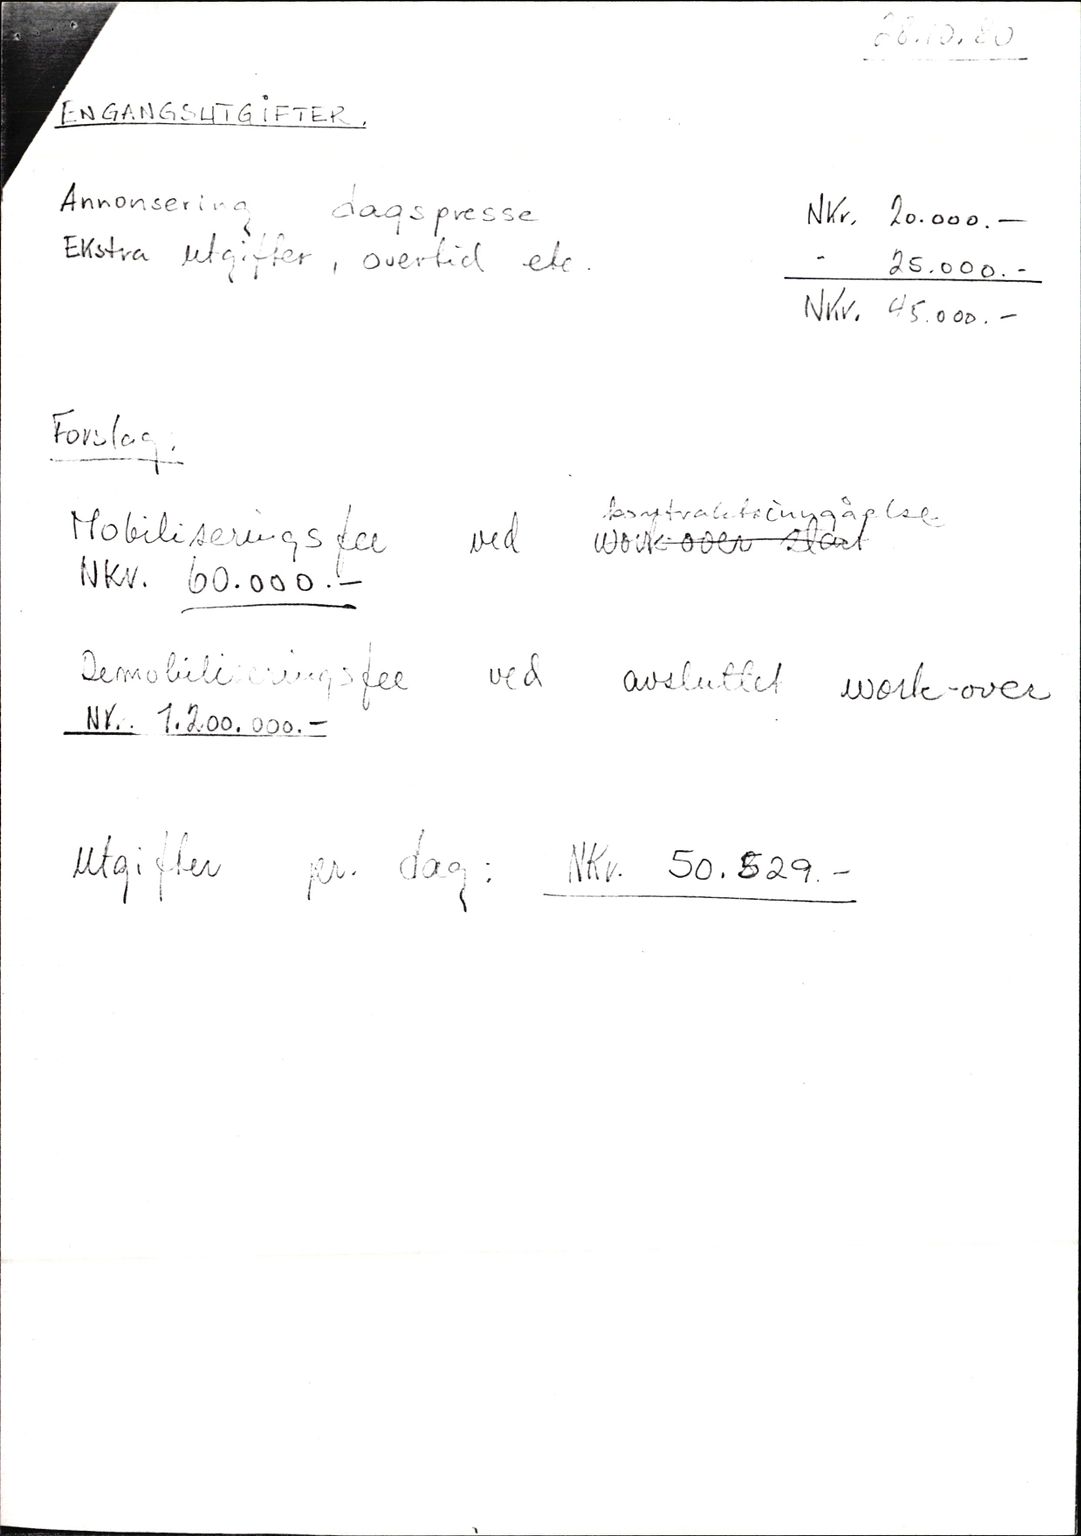 28.10.80
ENGANGSUTGIFTER.
Annonsering dagspresse NKr. 20.000.—
Ekstra utgifter, overtid etc. - 25.000.-
NKr. 45.000.-
Forslag:
kontraktsinngåelse
Mobiliseringsfee ved work-over start
NKr. 60.000.-
Demobiliseringsfee ved avsluttet work-over
NKr. 1.200.000.-
Utgifter pr. dag: NKr. 50.529.-